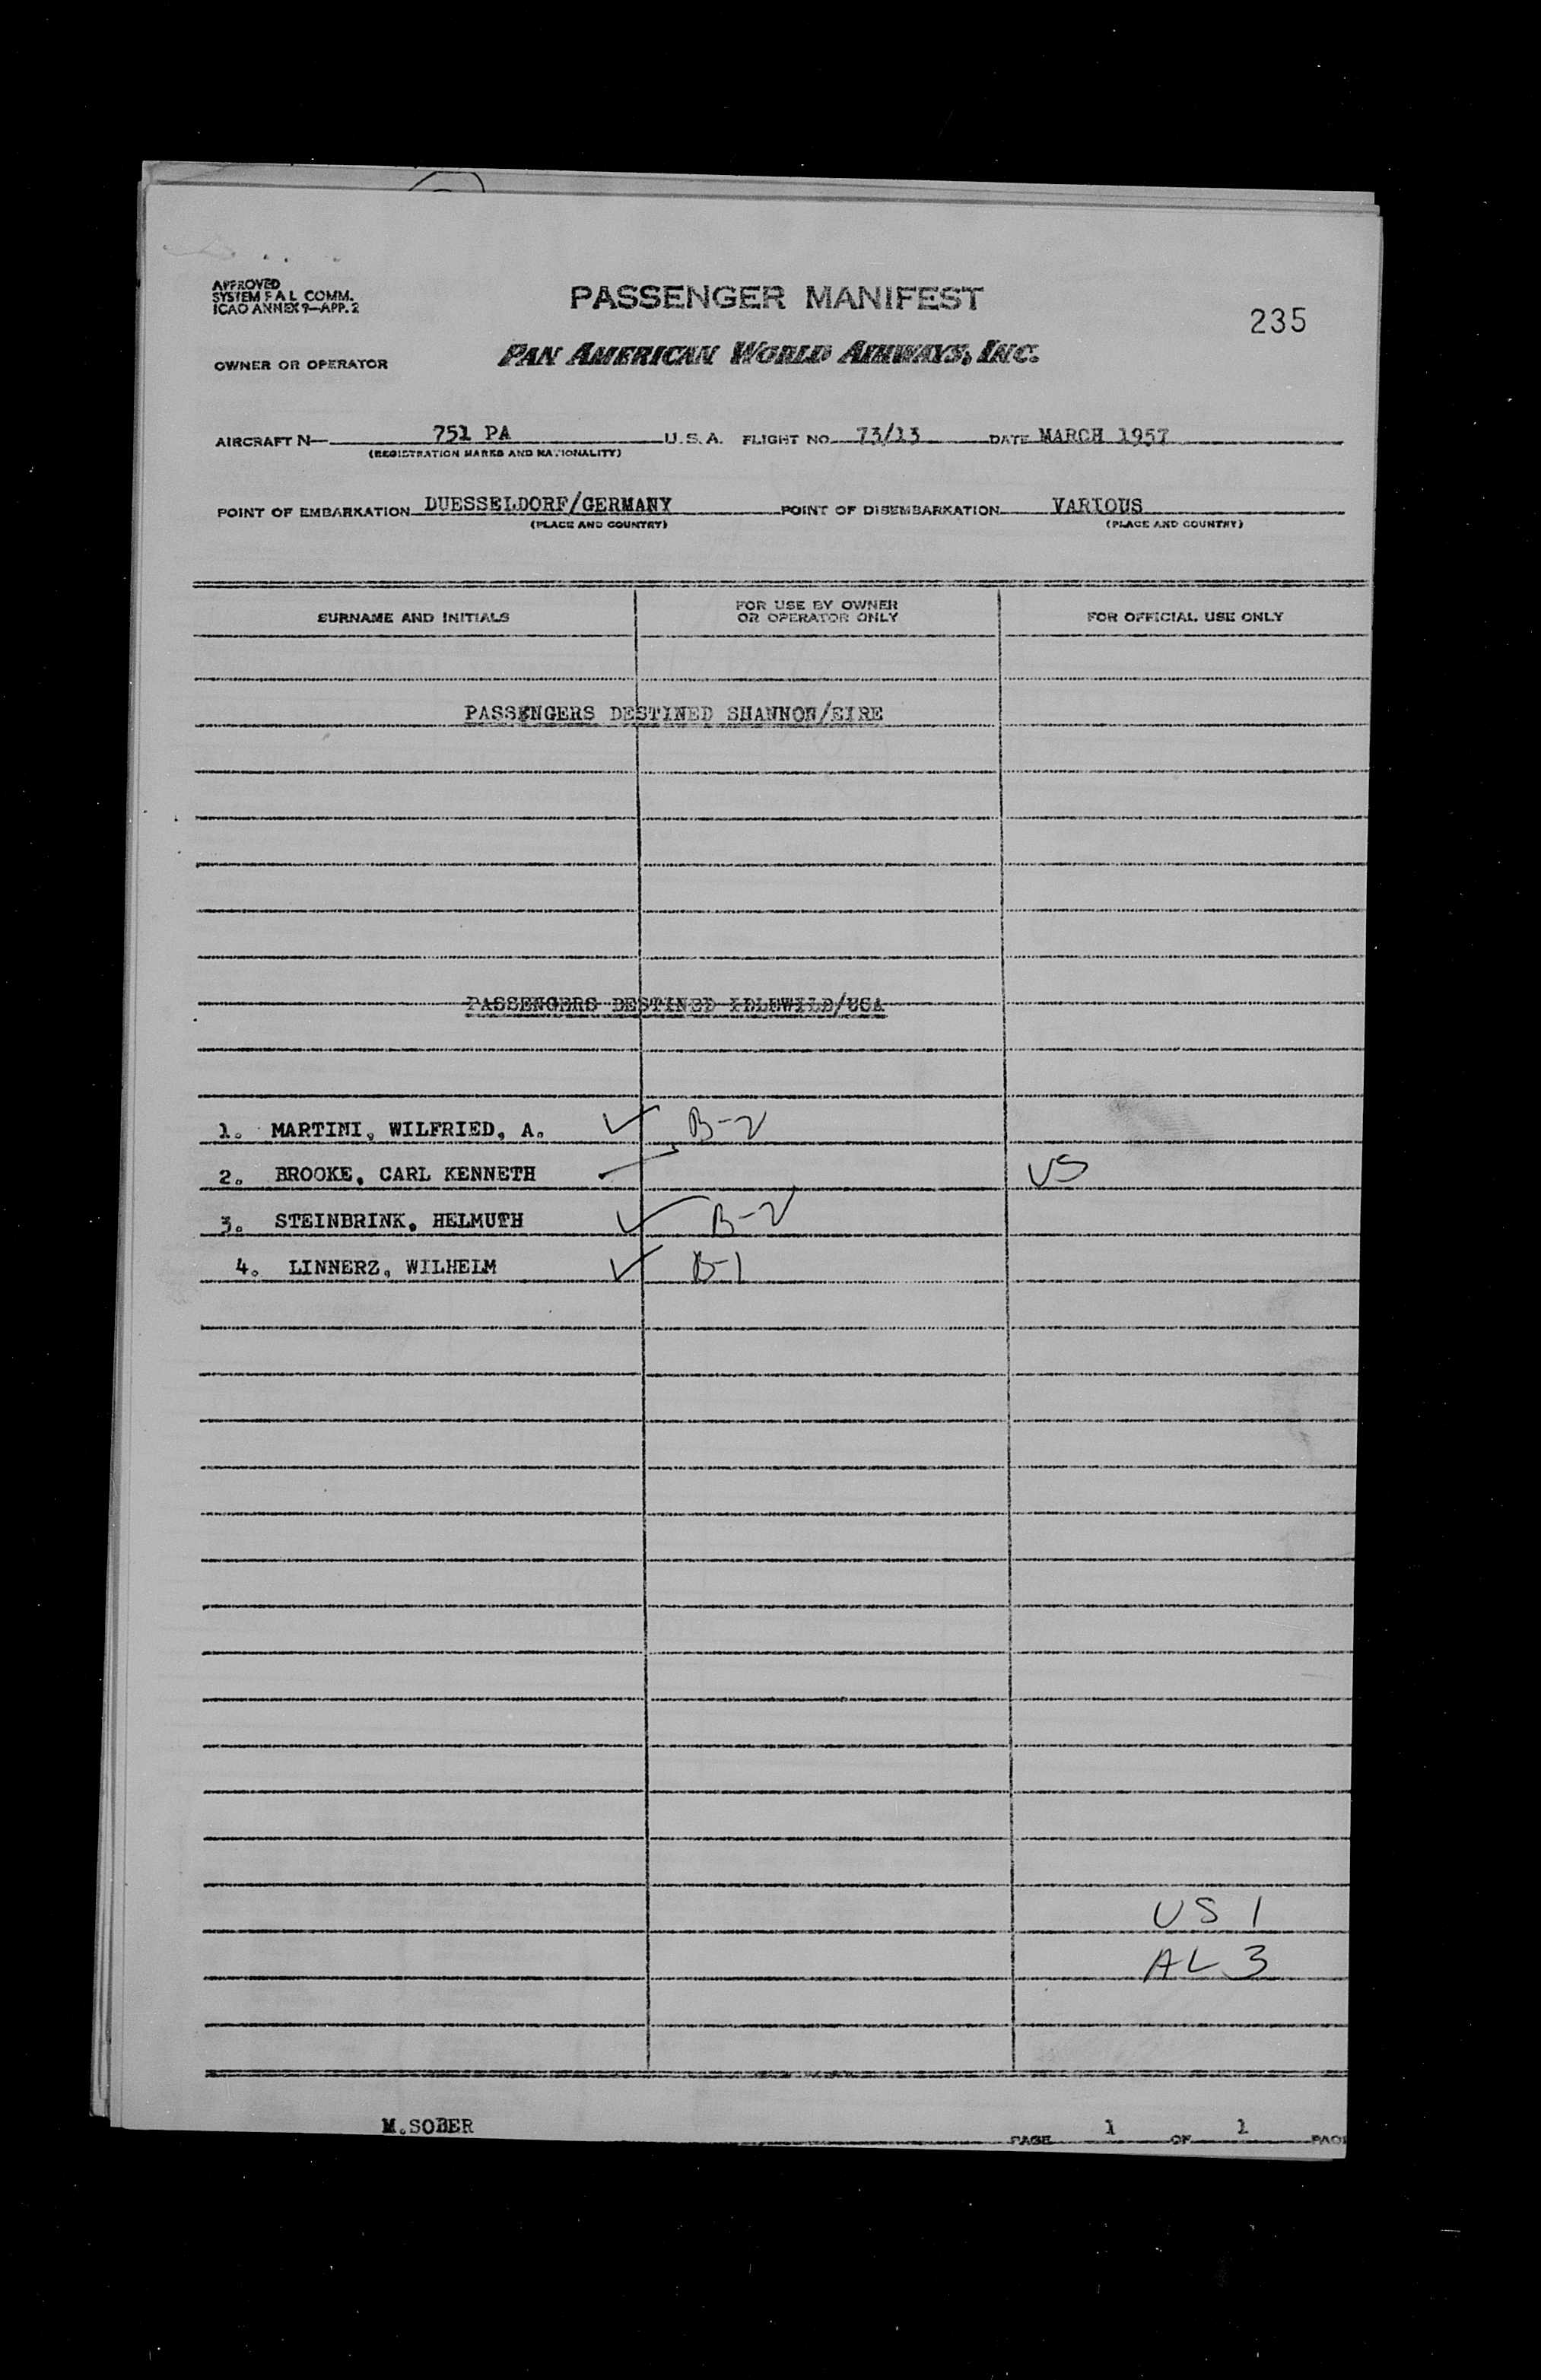 APPROVED
SYSTEM F A L COMM.
ICAO ANNEX 9—APP. 2
PASSENGER MANIFEST
235
OWNER OR OPERATOR
PAN AMERICAN WORLD AIRWAYS, INC.
AIRCRAFT N— 751 PA U. S. A. FLIGHT NO. 73/13 DATE MARCH 1957
(REGISTRATION MARKS AND NATIONALITY)
POINT OF EMBARKATION DUESSELDORF/GERMANY POINT OF DISEMBARKATION VARIOUS
(PLACE AND COUNTRY) (PLACE AND COUNTRY)
SURNAME AND INITIALS FOR USE BY OWNER OR OPERATOR ONLY FOR OFFICIAL USE ONLY
PASSENGERS DESTINED SHANNON/EIRE
PASSENGERS DESTINED IDLEWILD/USA
1. MARTINI, WILFRIED, A. ✓ B-2
2. BROOKE, CARL KENNETH ✓ US
3. STEINBRINK, HELMUTH ✓ B-2
4. LINNERZ, WILHELM ✓ B-1
US 1
AL 3
M.SOBER
PAGE 1 OF 1